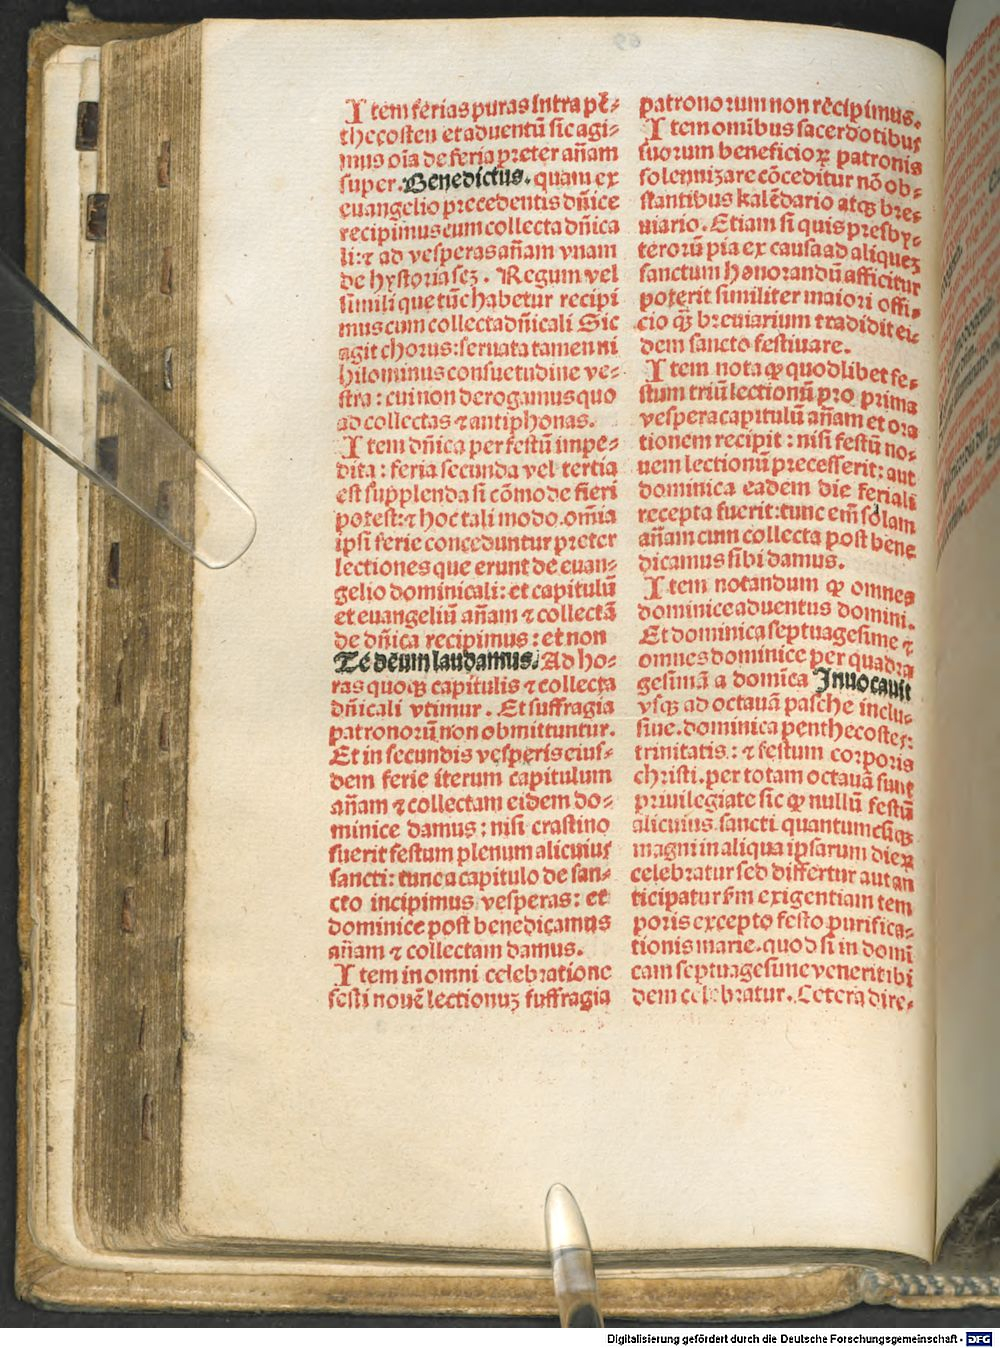 Item ferias puras intra pēt-
thecosten et aduentū sic agi-
mus oīa de feria preter añam
super. Benedictus. quam ex
euangelio precedentis dñice
recipimus cum collecta dñica
li: ⁊ ad vesperas añam vnam
de hystoria scꝫ. Regum vel
simili que tūc habetur recipi
mus cum collecta dñicali Sic
agit chorus: seruata tamen ni
hilominus consuetudine ve-
stra: cui non derogamus quo
ad collectas ⁊ antiphonas.
Item dñica per festū impe-
dita: feria secunda vel tertia
est supplenda si cōmode fieri
potest: ⁊ hoc tali modo. omīa
ipsi ferie conceduntur preter
lectiones que erunt de euan-
gelio dominicali: et capitulū
et euangeliū añam ⁊ collectā
de dñica recipimus: et non
Te deum laudamus. Ad ho-
ras quoqꝫ capitulis ⁊ collecta
dñicali vtimur. Et suffragia
patronorū non obmittuntur.
Et in secundis vesperis eius-
dem ferie iterum capitulum
añam ⁊ collectam eidem do-
minice damus: nisi crastino
fuerit festum plenum alicuius
sancti: tunc a capitulo de san-
cto incipimus vesperas: et
dominice post benedicamus
añam ⁊ collectam damus.
Item in omni celebratione
festi nouē lectionuꝫ suffragia
patronorum non recipimus.
Item omībus sacerdotibus
suorum beneficioꝝ patronis
solennizare cōceditur nō ob-
stantibus kalēdario atqꝫ bre-
uiario. Etiam si quis presby-
terorū pia ex causa ad aliqueꝫ
sanctum honorandū afficitur
poterit similiter maiori offi-
cio qꝫ breuiarium tradidit ei-
dem sancto festiuare.
Item nota ꝙ quodlibet fe-
stum triū lectionū pro prima
vespera capitulū añam et ora
tionem recipit: nisi festū no-
uem lectionū precesserit: aut
dominica eadem die feriali
recepta fuerit: tunc em̄ solam
añam cum collecta post bene
dicamus sibi damus.
Item notandum ꝙ omnes
dominice aduentus domini.
Et dominica septuagesime ⁊
omnes dominice per quadra
gesimā a domīca Inuocauit
vsqꝫ ad octauā pasche inclu-
siue. dominica penthecostes:
trinitatis: ⁊ festum corporis
christi. per totam octauā sunt
priuilegiate sic ꝙ nullū festū
alicuius sancti quantumcūqꝫ
magni in aliqua ipsarum dieꝝ
celebratur sed differtur aut an
ticipatur sm̄ exigentiam tem
poris excepto festo purifica-
tionis marie. quod si in domī
cam septuagesime venerit ibi
dem celebratur. Cetera dire-
Digitalisierung gefördert durch die Deutsche Forschungsgemeinschaft - DFG